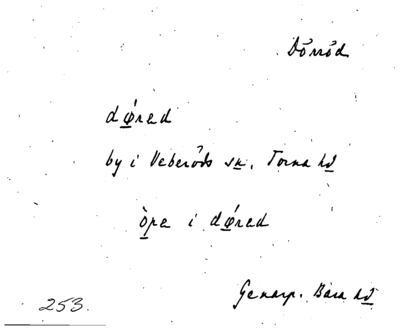 Dörröd
dǿ̲red
by i Veberöds sn̲. Torna hd̲
ò̲pe i dǿ̲red
Genarp. Bara hd̲
253.